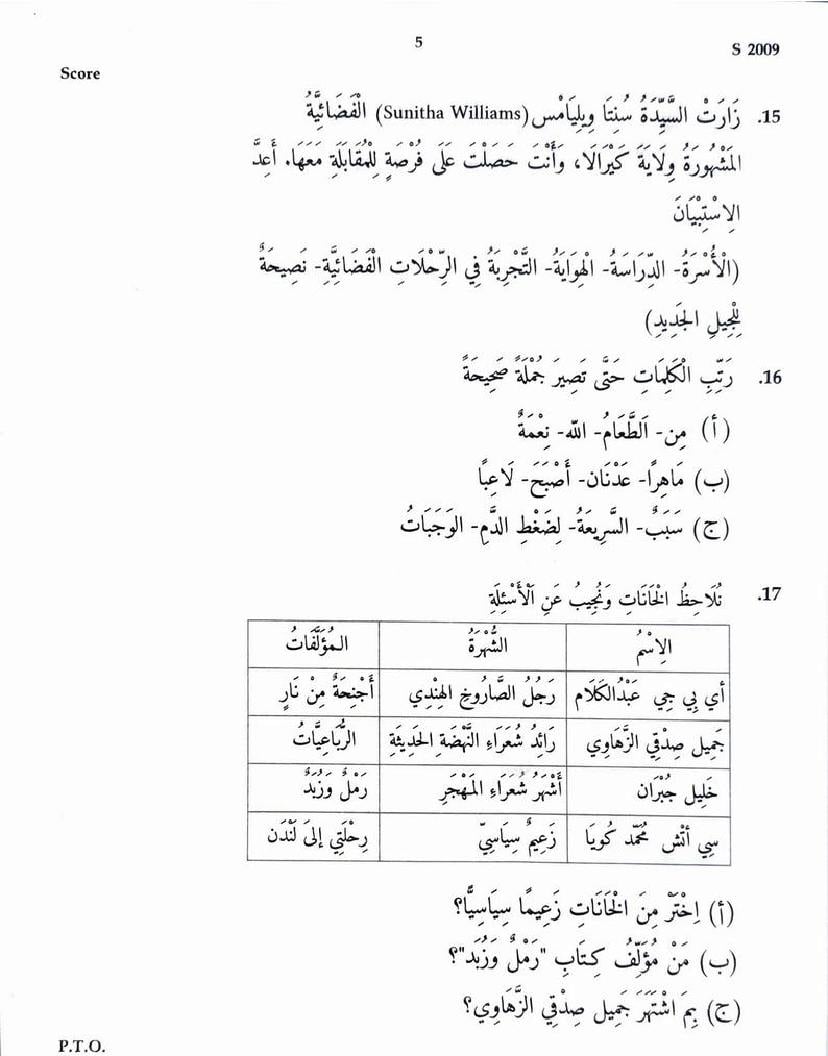 5
S 2009
Score
15. زَارَتْ السَّيِّدَةُ سُنِتَا وِيلِيَامْس (Sunitha Williams) الْفَضَائِيَّةُ
المَشْهُورَةُ وِلَايَةَ كَيْرَالَا، وَأَنْتَ حَصَلْتَ عَلَى فُرْصَةٍ لِلْمُقَابَلَةِ مَعَهَا. أَعِدَّ
الِاسْتِبْيَانَ
(الْأُسْرَةُ- الدِّرَاسَةُ- الْهِوَايَةُ- التَّجْرِبَةُ فِي الرِّحْلَاتِ الْفَضَائِيَّةِ- نَصِيحَةٌ
لِلْجِيلِ الْجَدِيدِ)
16. رَتِّبِ الْكَلِمَاتِ حَتَّى تَصِيرَ جُمْلَةً صَحِيحَةً
(أ) مِن- اَلطَّعَامُ- الله- نِعْمَةٌ
(ب) مَاهِرًا- عَدْنَان- أَصْبَحَ- لَاعِبًا
(ج) سَبَبٌ- السَّرِيعَةُ- لِضَغْطِ الدَّمِ- الوَجَبَاتُ
17. نُلَاحِظُ الْخَانَاتِ وَنُجِيبُ عَنِ الْأَسْئِلَةِ
الاِسْمُ الشُّهْرَةُ المُؤَلَّفَاتُ
أي بِي جِي عَبْدُالكَلَام رَجُلُ الصَّارُوخِ الهِنْدِي أَجْنِحَةٌ مِنْ نَارٍ
جَمِيل صِدْقِي الزَّهَاوِي رَائِدُ شُعَرَاءِ النَّهْضَةِ الحَدِيثَةِ الرُّبَاعِيَّاتُ
خَلِيل جُبْرَان أَشْهَرُ شُعَرَاءِ المَهْجَرِ رَمْلٌ وَزَبَدٌ
سِي أتْش مُحَمَّد كُويَا زَعِيمٌ سِيَاسِيّ رِحْلَتِي إِلَى لَنْدَن
(أ) اِخْتَرْ مِنَ الْخَانَاتِ زَعِيمًا سِيَاسِيًّا؟
(ب) مَنْ مُؤَلِّفُ كِتَابِ "رَمْلٌ وَزُبَد"؟
(ج) بِمَ اشْتَهَرَ جَمِيل صِدْقِي الزَّهَاوِي؟
P.T.O.